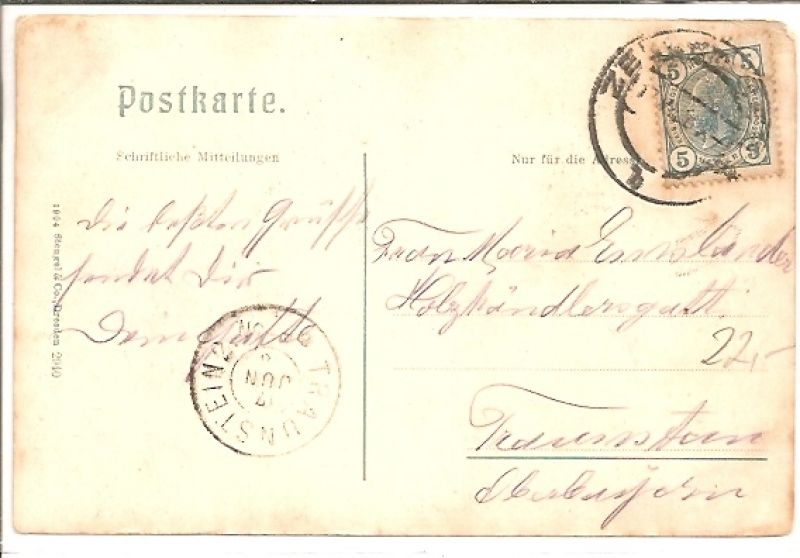 Postkarte.
Schriftliche Mitteilungen
Nur für die Adresse
5 5
5 5
ZE
1904 Stengel & Co., Dresden 2940
Die besten Grüsse
sendet Dir
Dein Gatte
Frau Maria
Holzhändlersgatti
22,-
Traunstein
Oberbayern
TRAUNSTEIN
17
JUN